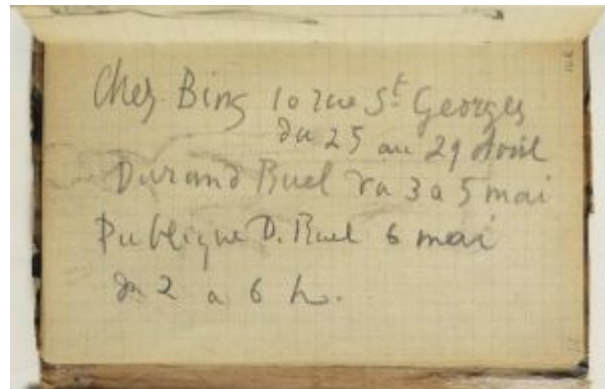 Chez Bing 10 rue St Georges
du 25 au 29 Avril
Durand Ruel du 3 a 5 mai
Publique D. Ruel 6 mai
de 2 a 6 h.